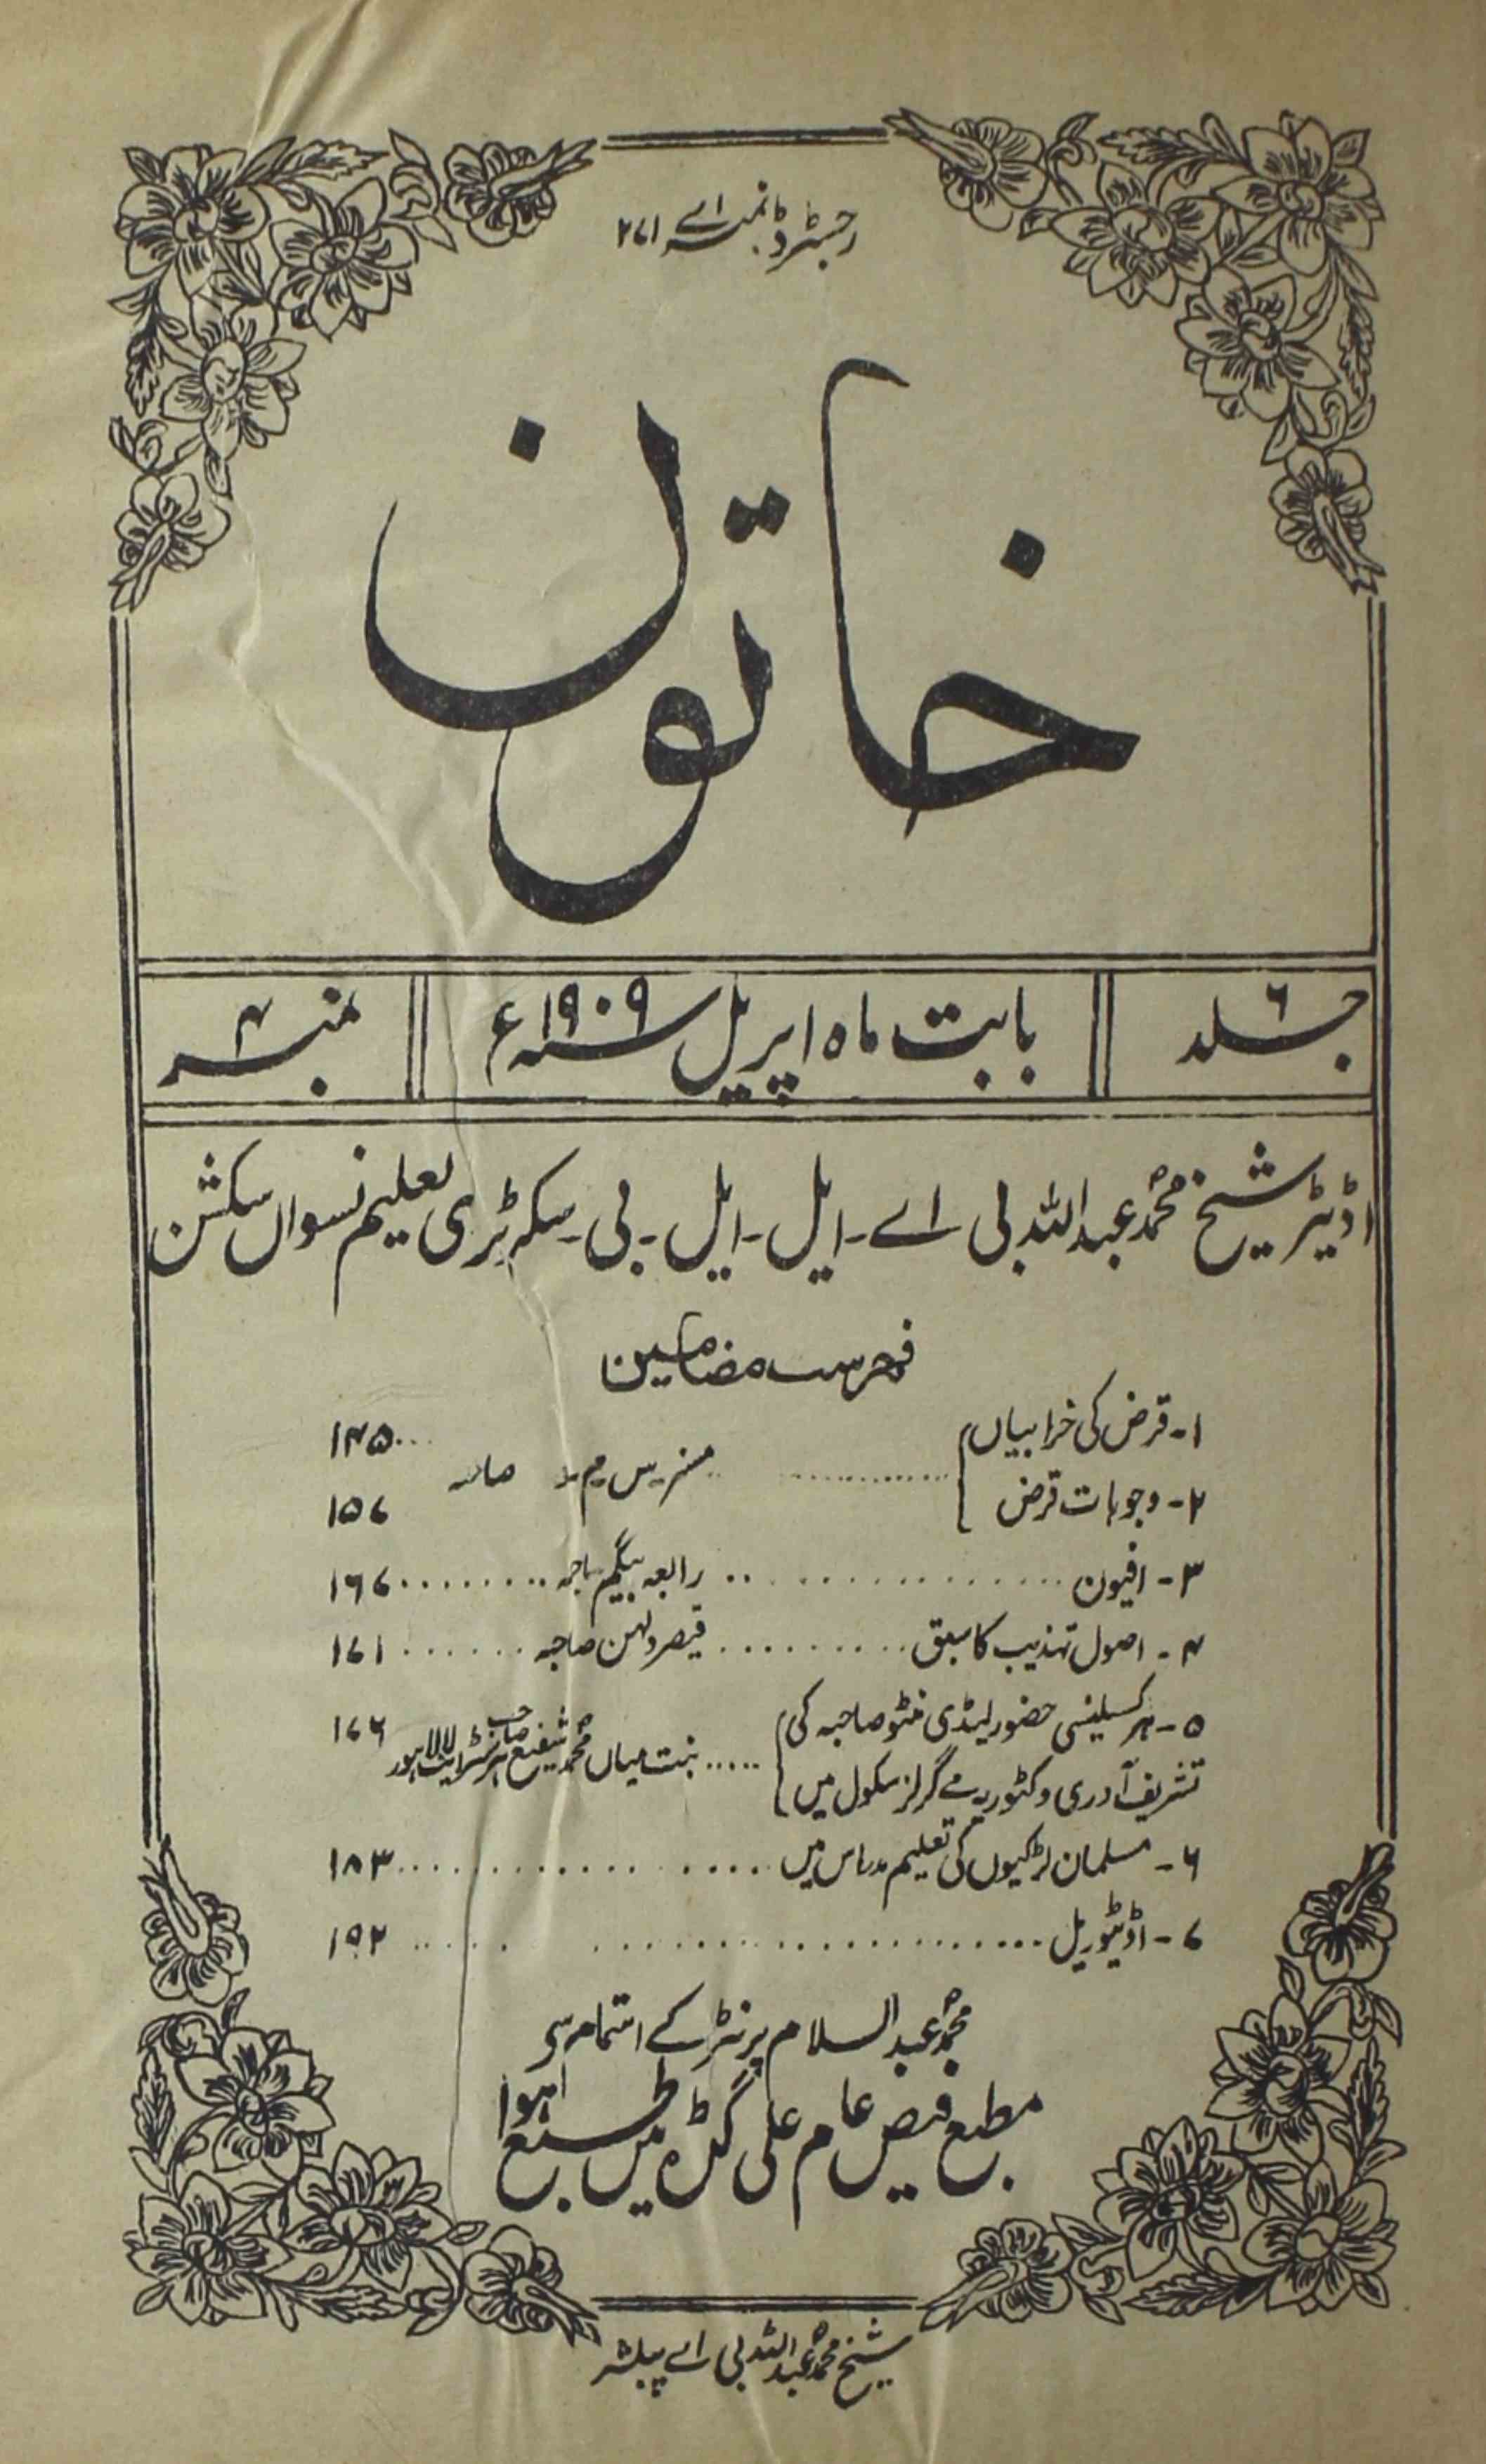 رجسٹرڈ نمبر اے ۲۷۱
خاتون
جلد ۶
بابت ماہ اپریل سنہ ۱۹۰۹ء
نمبر ۴
اڈیٹر شیخ محمد عبداللہ بی اے - ایل - ایل - بی - سکرٹری تعلیم نسواں سکشن
فہرست مضامین
۱- قرض کی خرابیاں ... ۱۴۵
مسز - س - م - صاحبہ
۲- وجوہات قرض ۱۵۷
۳- افیون ... رابعہ بیگم صاحبہ ... ۱۶۷
۴- اصول تہذیب کا سبق ... قیصر دلہن صاحبہ ... ۱۷۱
۵- ہر کسیلنسی حضور لیڈی منٹو صاحبہ کی
تشریف آوری وکٹوریہ مے گرلز سکول میں ... بنت میاں محمد شفیع صاحب بیرسٹر ایٹ لا لاہور ۱۷۶
۶- مسلمان لڑکیوں کی تعلیم مدراس میں ... ۱۸۳
۷- اڈیٹوریل ... ۱۹۲
محمد عبدالسلام پرنٹر کے اہتمام سی
مطبع فیض عام علی گڑہ میں طبع ہوا
شیخ محمد عبداللہ بی اے پبلشر